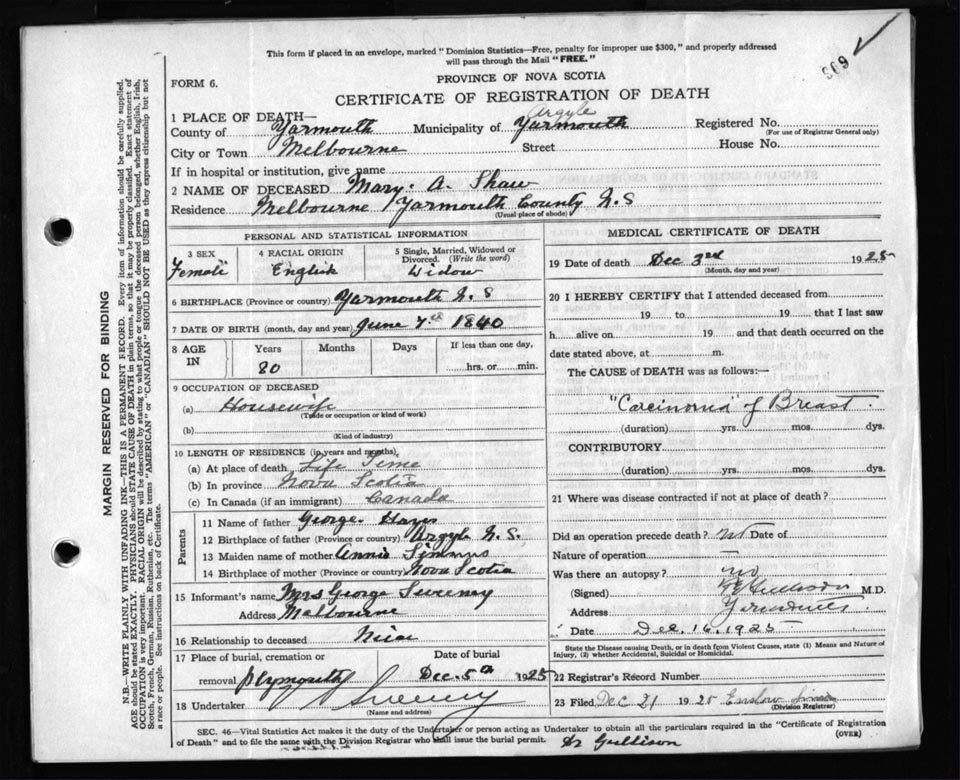 This form if placed in an envelope, marked "Dominion Statistics—Free, penalty for improper use $300," and properly addressed
will pass through the Mail "FREE."
309
FORM 6.
PROVINCE OF NOVA SCOTIA
CERTIFICATE OF REGISTRATION OF DEATH
1 PLACE OF DEATH—
Argyle
County of Yarmouth Municipality of Yarmouth Registered No.
(For use of Registrar General only)
City or Town Melbourne Street House No.
If in hospital or institution, give name
2 NAME OF DECEASED Mary. A. Shaw
Residence Melbourne Yarmouth County N.S
(Usual place of abode)
PERSONAL AND STATISTICAL INFORMATION
3 SEX
Female
4 RACIAL ORIGIN
English
5 Single, Married, Widowed or
Divorced. (Write the word)
Widow
6 BIRTHPLACE (Province or country) Yarmouth N.S
7 DATE OF BIRTH (month, day and year) June 7th 1840
8 AGE
IN
Years Months Days If less than one day,
80 hrs. or min.
9 OCCUPATION OF DECEASED
(a) Housewife
(Trade or occupation or kind of work)
(b)
(Kind of industry)
10 LENGTH OF RESIDENCE (in years and months)
(a) At place of death Life Time
(b) In province Nova Scotia
(c) In Canada (if an immigrant) Canada
Parents
11 Name of father George
12 Birthplace of father (Province or country) Argyle N.S.
13 Maiden name of mother Annie
14 Birthplace of mother (Province or country) Nova Scotia
15 Informant's name Mrs George Sweeney
Address Melbourne
16 Relationship to deceased Niece
17 Place of burial, cremation or Date of burial
removal Plymouth Dec. 5th 1925
18 Undertaker Sweeny
(Name and address)
MEDICAL CERTIFICATE OF DEATH
19 Date of death Dec 3rd 1925
(Month, day and year)
20 I HEREBY CERTIFY that I attended deceased from
19 to 19 that I last saw
h alive on 19 and that death occurred on the
date stated above, at m.
The CAUSE of DEATH was as follows:—
"Carcinoma" of Breast.
(duration) yrs. mos. dys.
CONTRIBUTORY
(duration) yrs. mos. dys.
21 Where was disease contracted if not at place of death?
Did an operation precede death? no Date of
Nature of operation —
Was there an autopsy? no
(Signed) M.D.
Address
" Date Dec. 16, 1925
State the Disease causing Death, or in death from Violent Causes, state (1) Means and Nature of
Injury, (2) whether Accidental, Suicidal or Homicidal.
22 Registrar's Record Number
23 Filed Dec 21 1925 Enslow
(Division Registrar)
SEC. 46—Vital Statistics Act makes it the duty of the Undertaker or person acting as Undertaker to obtain all the particulars required in the "Certificate of Registration
of Death" and to file the same with the Division Registrar who shall issue the burial permit.
(OVER)
Dr Gullison
MARGIN RESERVED FOR BINDING
N.B.—WRITE PLAINLY WITH UNFADING INK—THIS IS A PERMANENT RECORD. Every item of information should be carefully supplied.
AGE should be stated EXACTLY. PHYSICIANS should STATE CAUSE OF DEATH in plain terms, so that it may be properly classified. Exact statement of
OCCUPATION is very important. RACIAL ORIGIN will be described by stating to what people or tongue the deceased person belonged, whether English, Irish,
Scotch, French, German, Russian, Ruthenian, etc. The terms "AMERICAN" or "CANADIAN" SHOULD NOT BE USED as they express citizenship but not
a race or people. See instructions on back of Certificate.